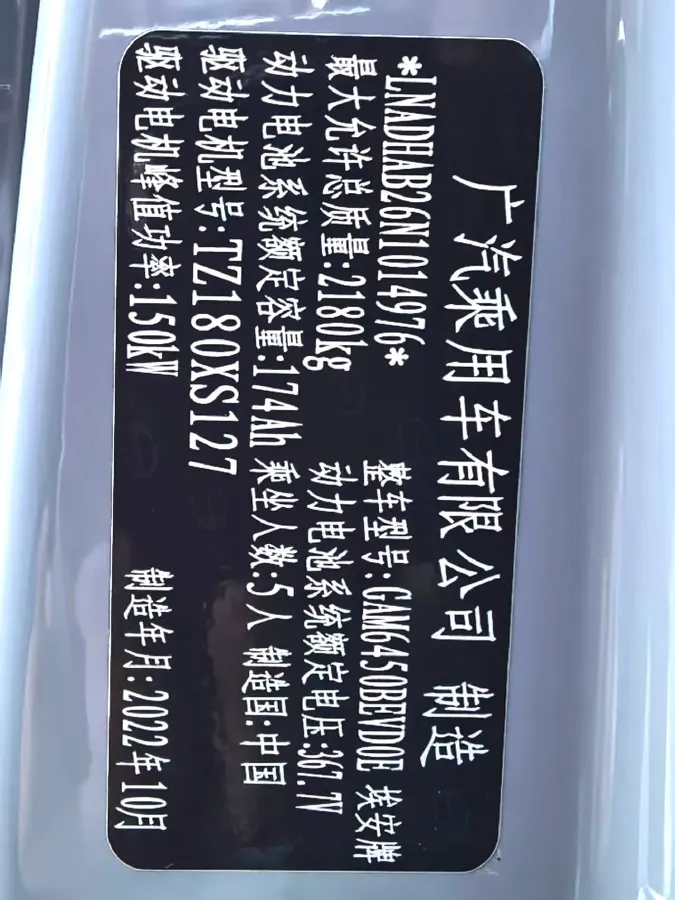 广汽乘用车有限公司 制造
*LNADHAB26N1014976* 整车型号:GAM6450BEVD0E 埃安牌
最大允许总质量:2180kg 动力电池系统额定电压:367.7V
动力电池系统额定容量:174Ah 乘坐人数:5人 制造国:中国
驱动电机型号:TZ180XS127
驱动电机峰值功率:150kW 制造年月:2022年10月